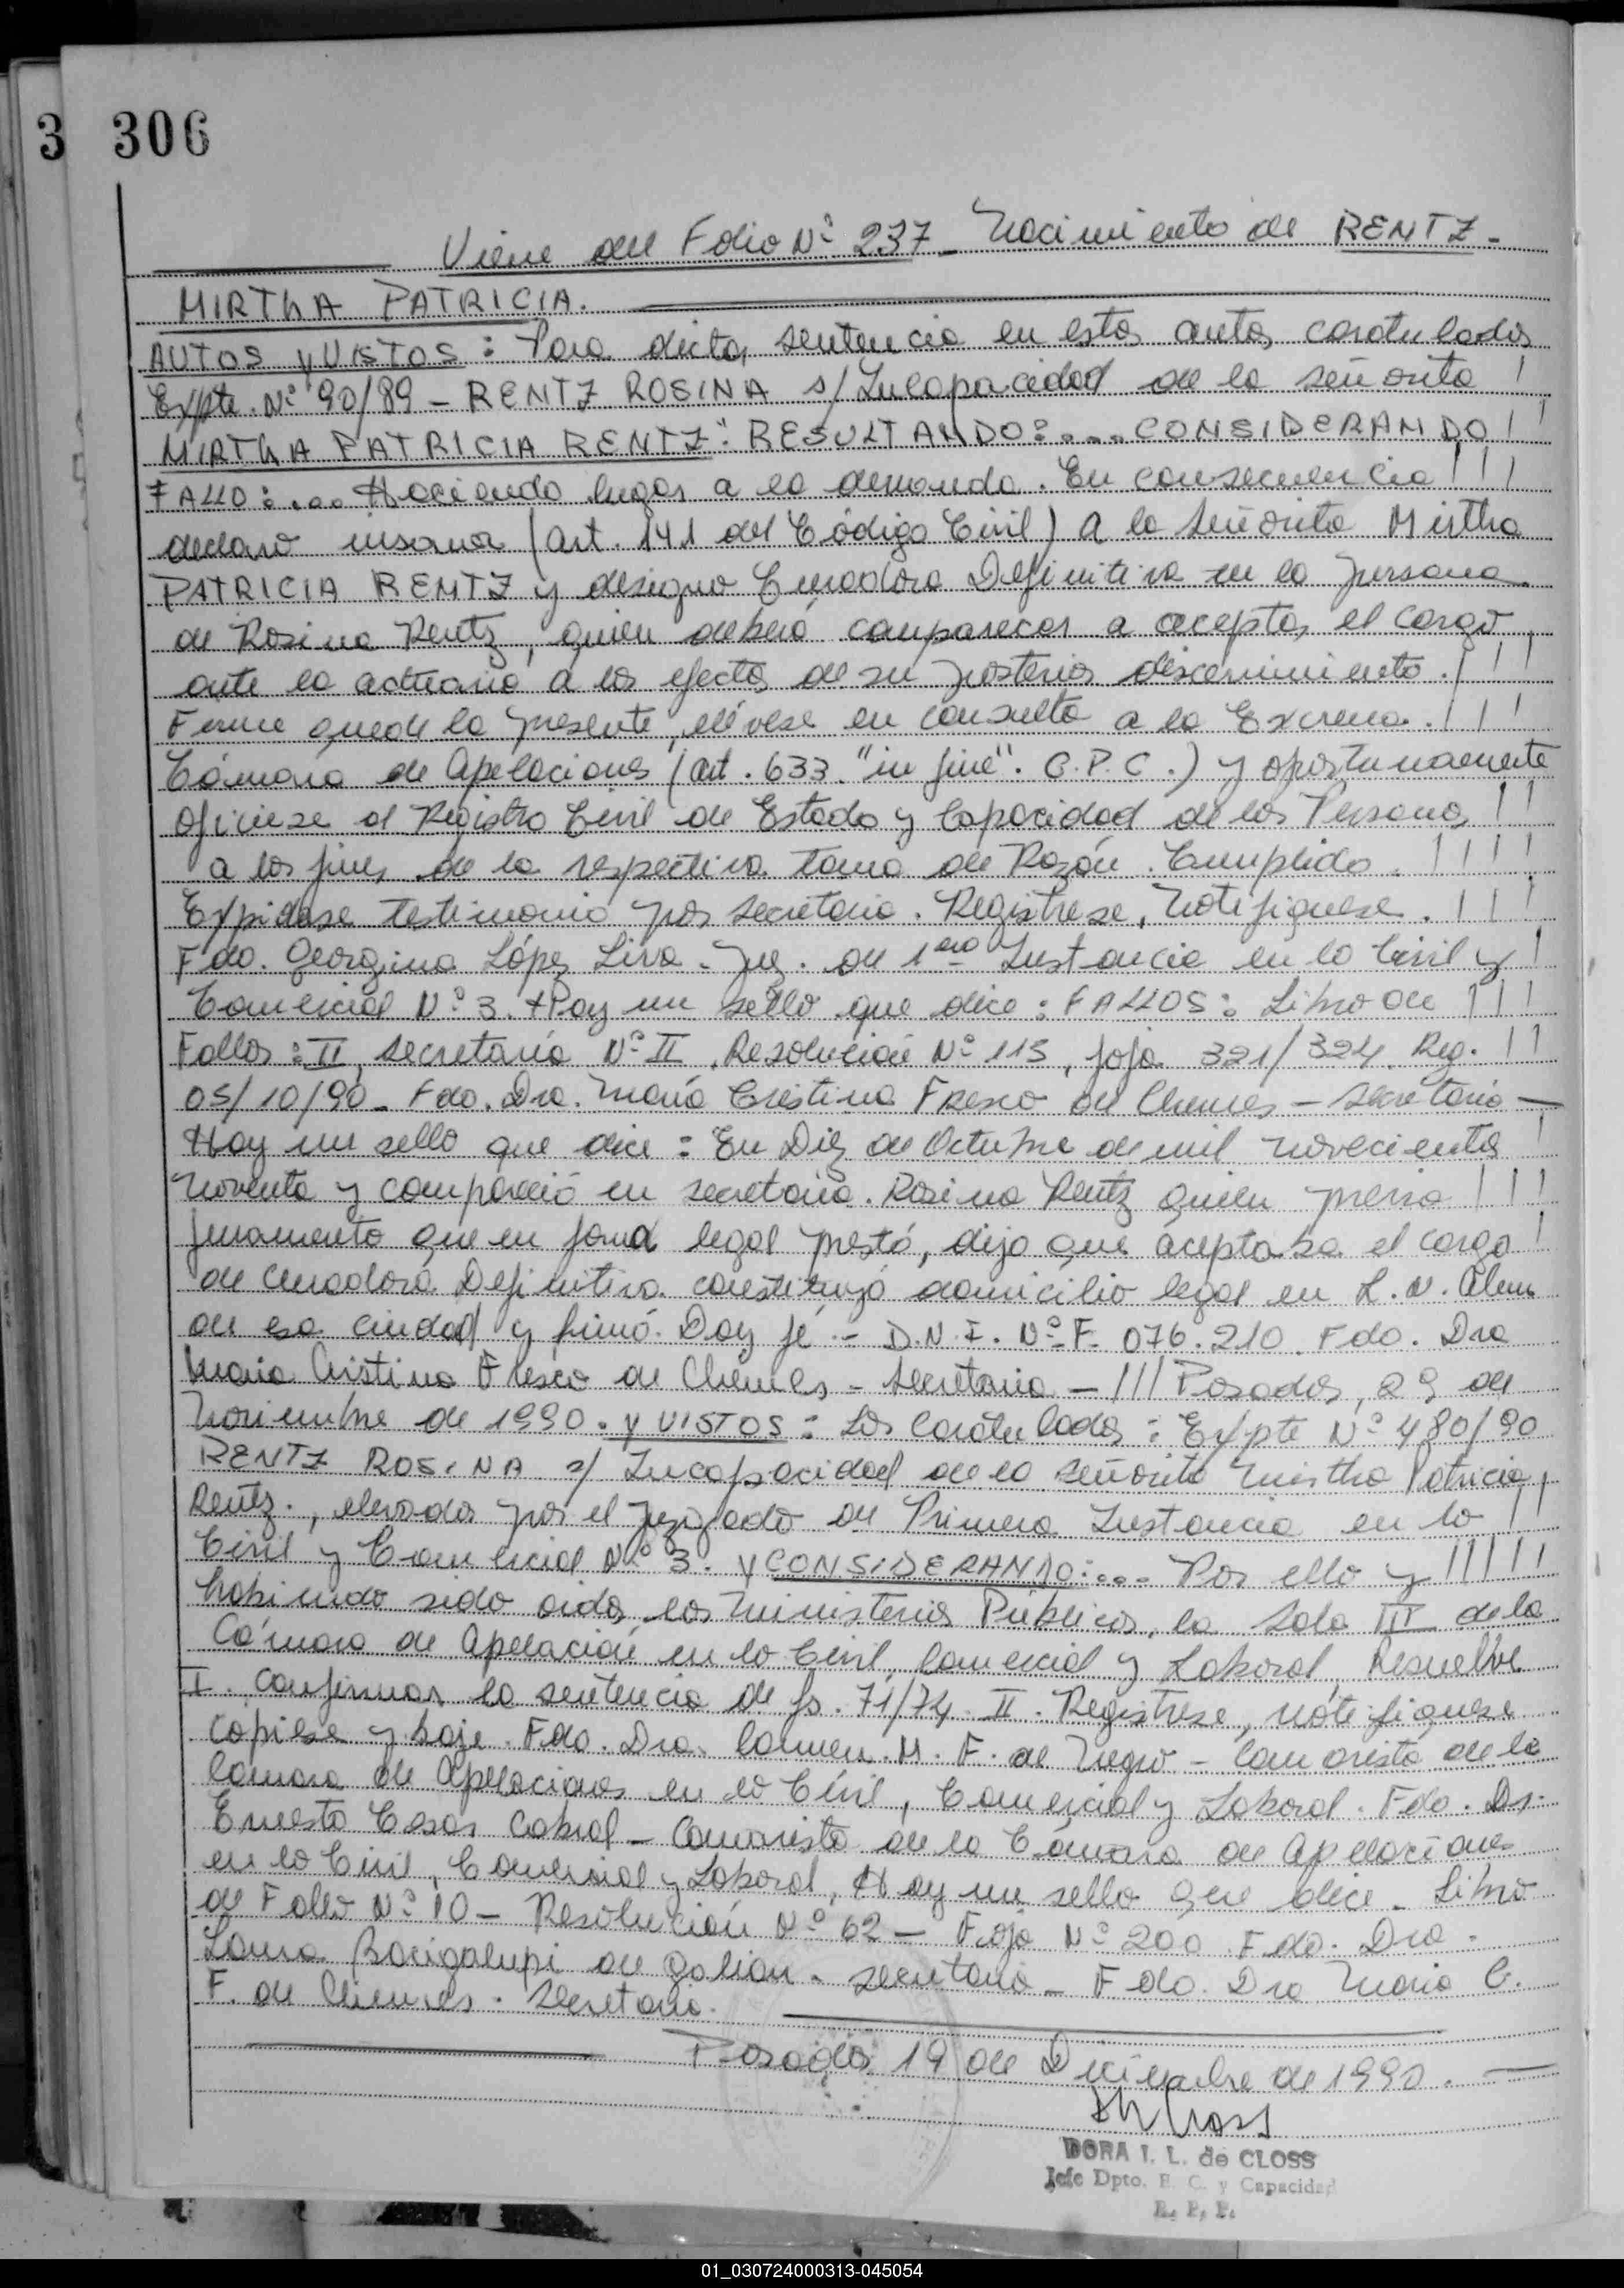 3 306
Viene del Folio Nº 237_ Nacimiento de RENTZ_
MIRTHA PATRICIA.
AUTOS y VISTOS: Para dictar sentencia en estos autos caratulados
Expte. Nº 90/89 _ RENTZ ROSINA s/ Incapacidad de la señorita /
MIRTHA PATRICIA RENTZ". RESULTANDO:.... CONSIDERANDO //
FALLO:.... Haciendo lugar a la demanda. En consecuencia ///
declaro insana (art. 141 del Código Civil) a la señorita Mirtha
PATRICIA RENTZ y designo Curadora Definitiva en la persona
de Rosina Rentz, quien deberá comparecer a aceptar el cargo
ante la actuaria a los efectos de su posterior discernimiento. ///
Firme quede la presente, elévese en consulta a la Excma. ///
Cámara de Apelaciones (art. 633. "in fine". C.P.C.) y oportunamente
ofíciese al Registro Civil de Estado y Capacidad de las Personas //
a los fines de la respectiva toma de Razón. Cumplido. ////
Expídase testimonio por secretaria. Registrese, Notifiquese. ///
Fdo. Georgina López Liva. Juez. de 1era Instancia en lo Civil y /
Comercial Nº 3. Hay un sello que dice: FALLOS: Libro de ///
Fallos: II, secretaría Nº II, Resolución Nº 113, foja 321/324. Reg. //
05/10/90_ Fdo. Dra. María Cristina Fresco de Chemes _ secretaria _
Hay un sello que dice: En Diez de Octubre de mil novecientos /
noventa y compareció en secretaría. Rosina Rentz quien previo ///
juramento que en forma legal prestó, dijo que aceptaba el cargo /
de curadora Definitiva constituyó domicilio legal en L. N. Alem
de esa ciudad y firmó. Doy fé _ D.N.I. Nº F. 076.210. Fdo. Dra
María Cristina Fresco de Chemes _ secretaria _ /// Posadas, 29 de
Noviembre de 1990. y VISTOS: Los Caratulados: Expte Nº 480/90
RENTZ ROSINA s/ Incapacidad de la señorita Mirtha Patricia /
Rentz., elevados por el Juzgado de Primera Instancia en lo //
Civil y Comercial Nº 3. y CONSIDERANDO:... Por ello y /////
habiendo sido oidos los Ministerios Públicos, la Sala III de la
Cámara de Apelación en lo Civil, Comercial y Laboral, Resuelve
I. Confirmar la sentencia de fs. 71/74. II. Registrese, nótifiquese
cópiese y baje. Fdo. Dra. Carmen. M. F. de Negro _ Camarista de la
Camara de Apelaciones en lo Civil, Comercial y Laboral. Fdo. Dr.
Ernesto Cesar Cabral _ Camarista de la Cámara de Apelaciones
en lo Civil, Comercial y Laboral, Hay un sello que dice. Libro
de Fallo Nº 10 _ Resolución Nº 62 _ Foja Nº 200. Fdo. Dra.
Laura Bacigalupi de Galian. secretaria _ Fdo. Dra María C.
F. de Chemes. Secretaria.
Posadas 19 de Diciembre de 1990.
DORA I. L. de CLOSS
Jefe Dpto. E. C. y Capacidad
R. P. P.
01_030724000313-045054